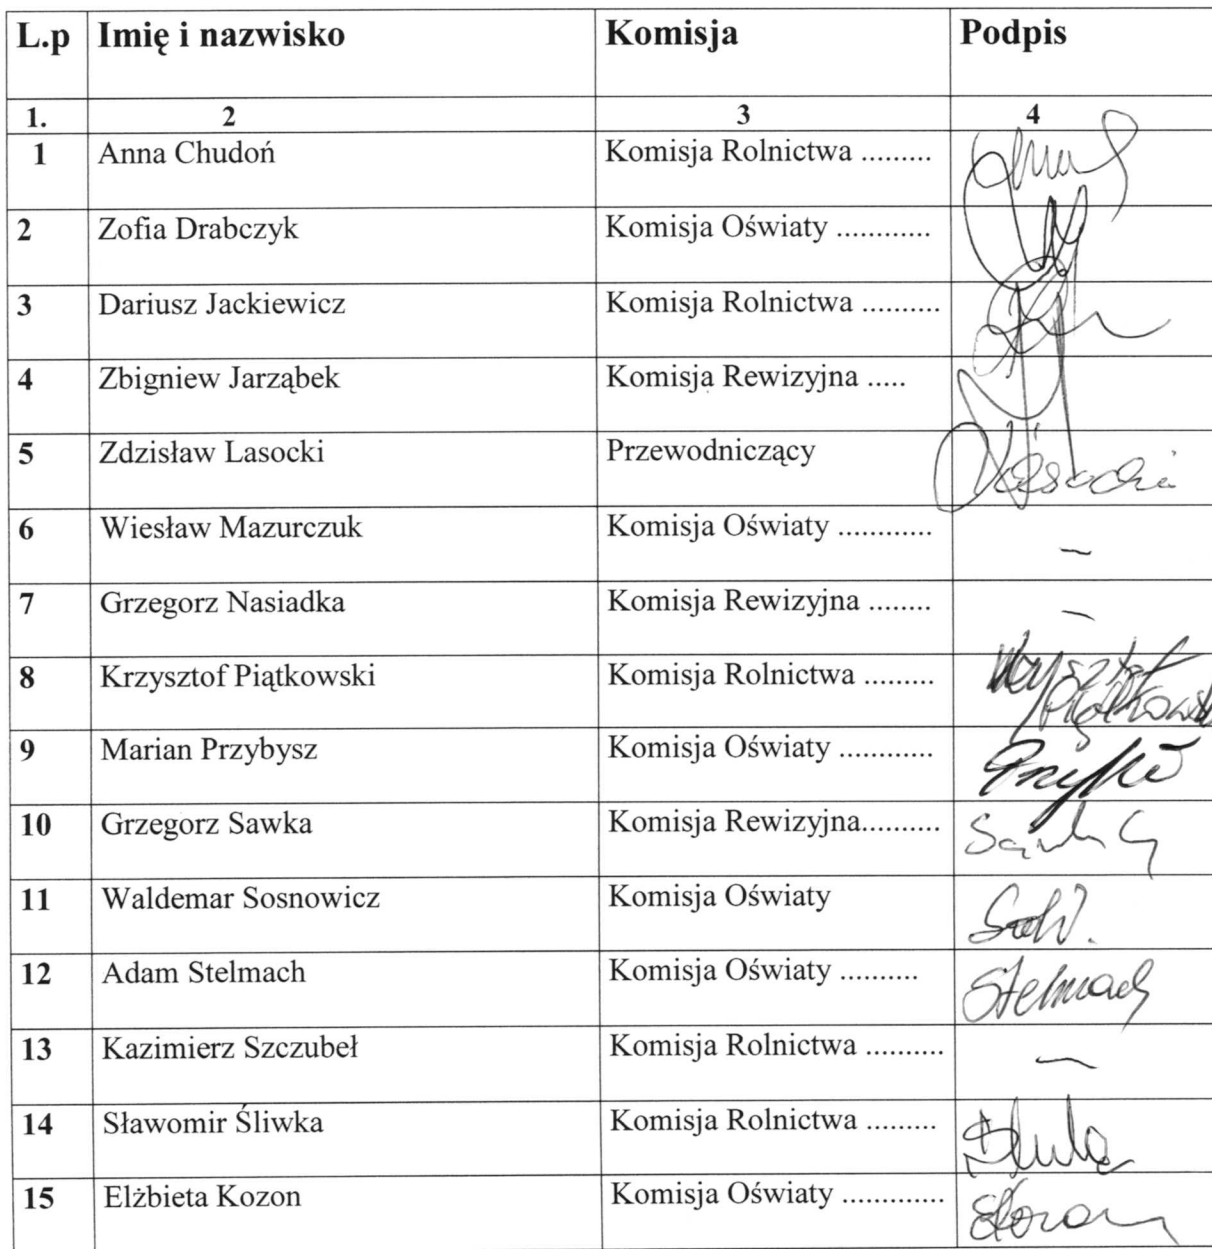 L.p Imię i nazwisko Komisja Podpis
1. 2 3 4
1 Anna Chudoń Komisja Rolnictwa .........
2 Zofia Drabczyk Komisja Oświaty ............
3 Dariusz Jackiewicz Komisja Rolnictwa ..........
4 Zbigniew Jarząbek Komisja Rewizyjna .....
5 Zdzisław Lasocki Przewodniczący
6 Wiesław Mazurczuk Komisja Oświaty ............ –
7 Grzegorz Nasiadka Komisja Rewizyjna ........ –
8 Krzysztof Piątkowski Komisja Rolnictwa ......... Krzysztof
Piątkowski
9 Marian Przybysz Komisja Oświaty ............
10 Grzegorz Sawka Komisja Rewizyjna.......... Sawka G
11 Waldemar Sosnowicz Komisja Oświaty
12 Adam Stelmach Komisja Oświaty .......... Stelmach
13 Kazimierz Szczubeł Komisja Rolnictwa .......... –
14 Sławomir Śliwka Komisja Rolnictwa .........
15 Elżbieta Kozon Komisja Oświaty .............